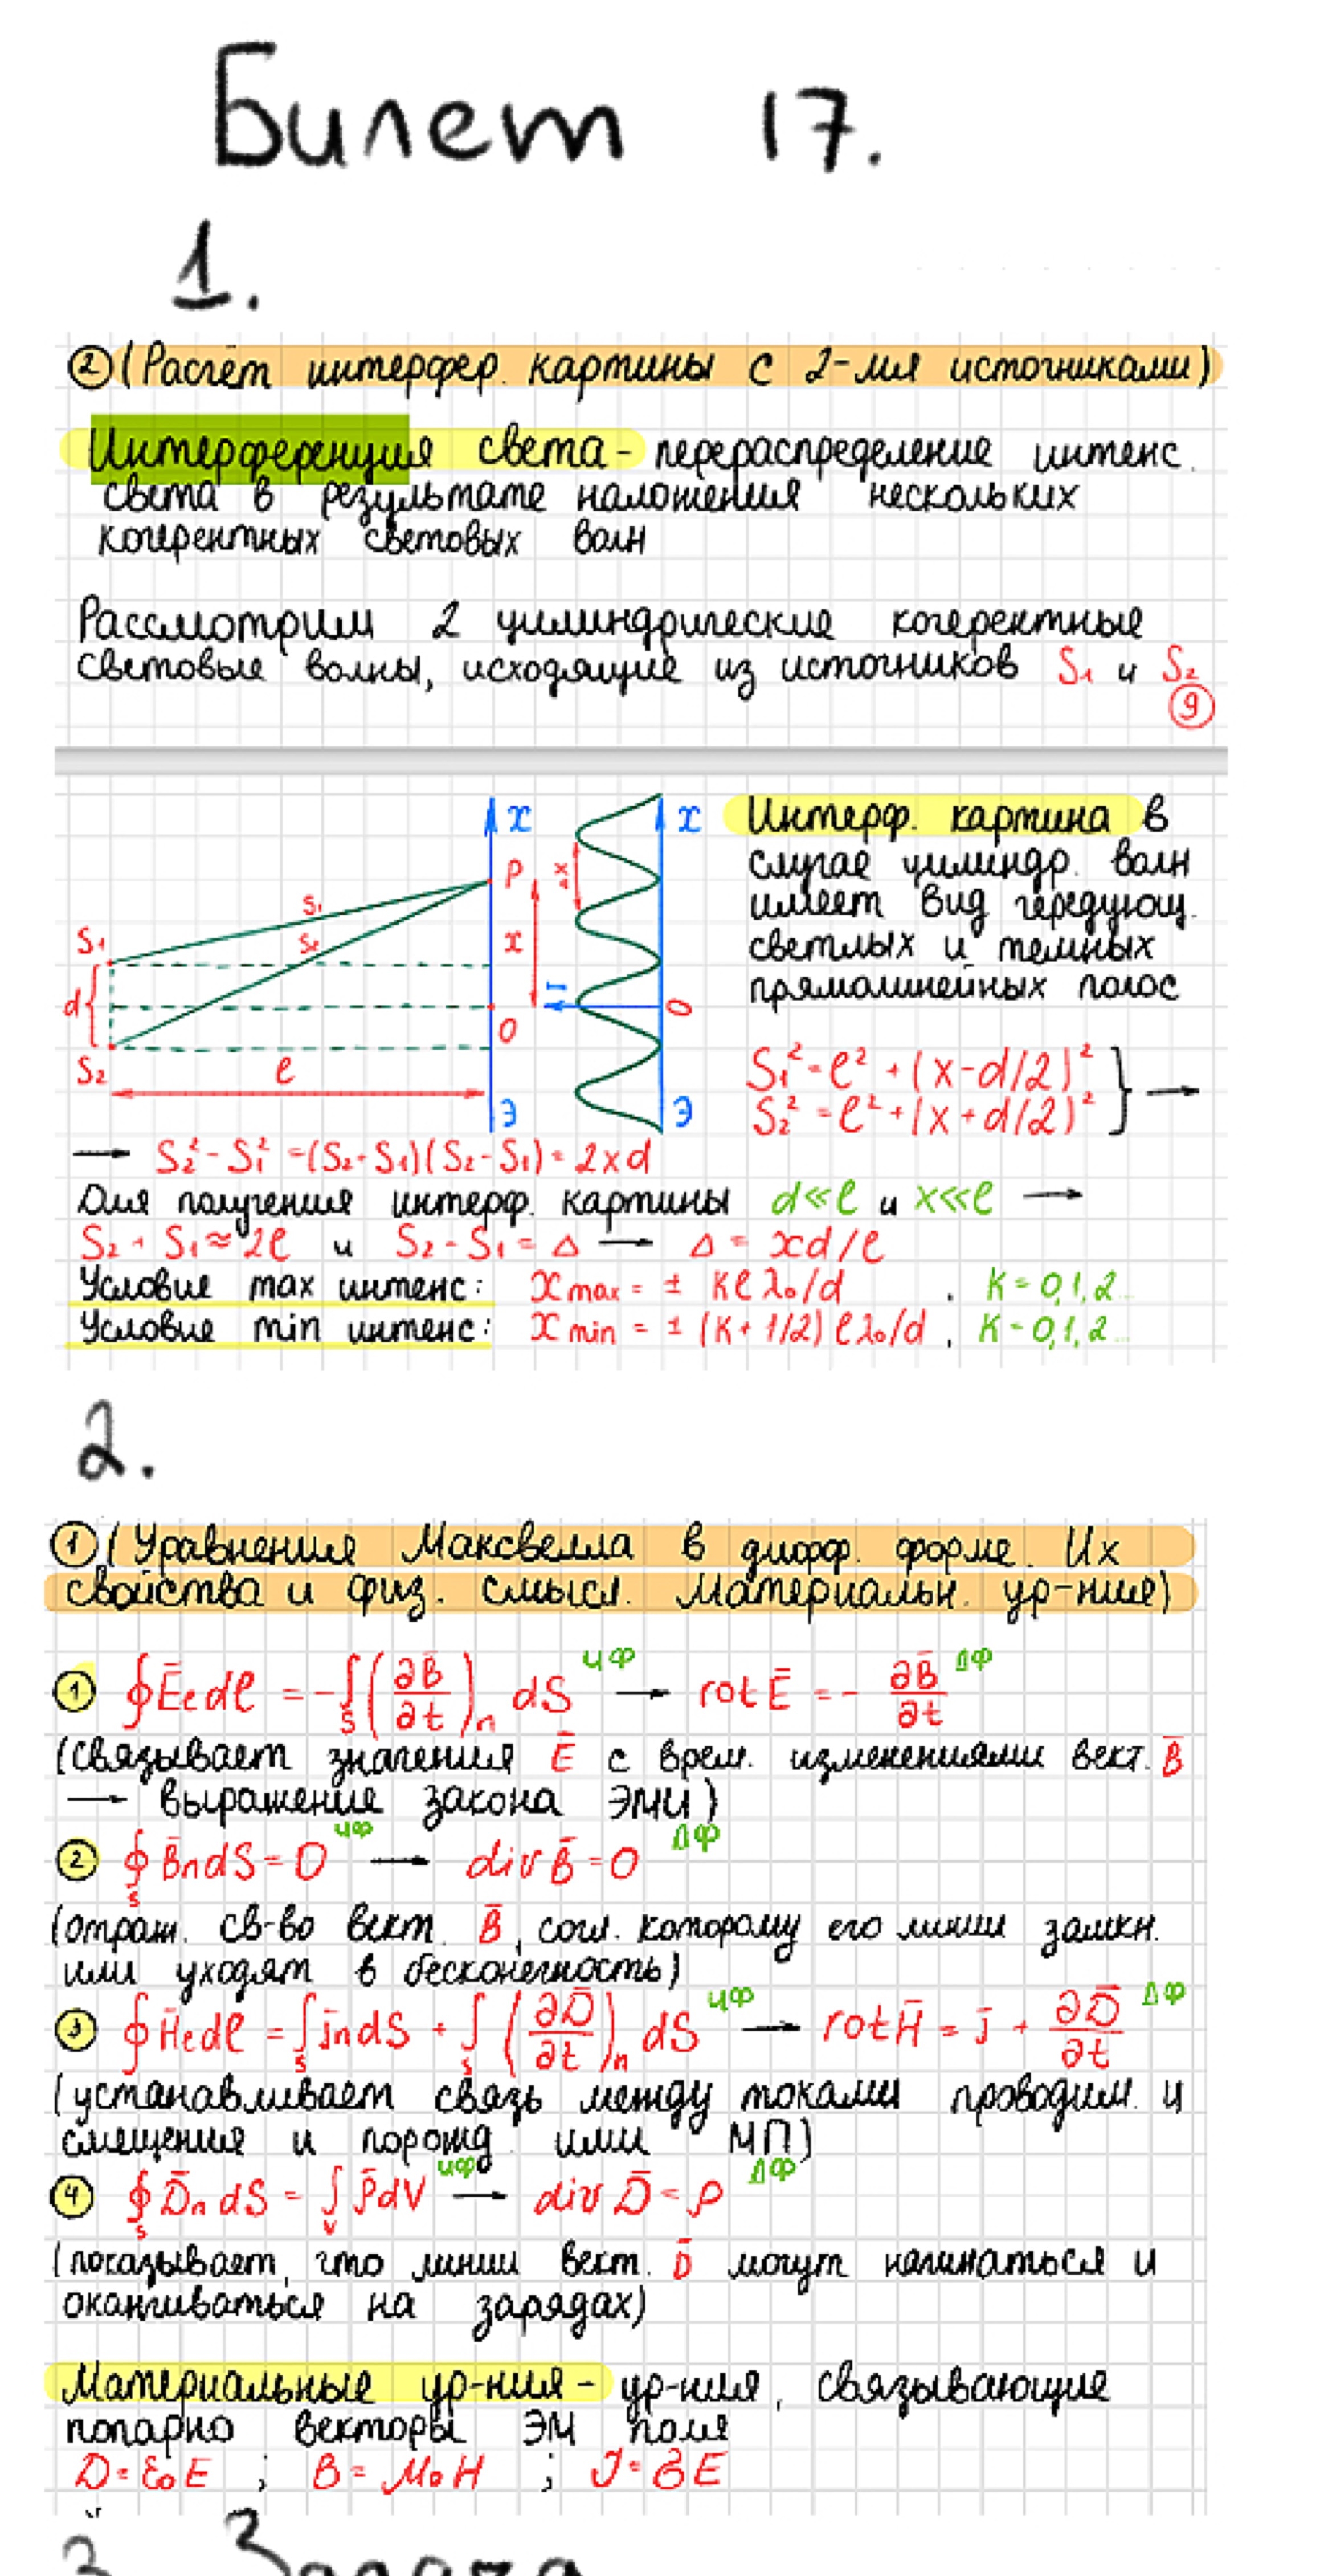 Билет 17.
1.
② (Расчёт интерфер. картины с 2-мя источниками)
Интерференция света - перераспределение интенс.
света в результате наложения нескольких
когерентных световых волн
Рассмотрим 2 цилиндрические когерентные
световые волны, исходящие из источников S₁ и S₂
⑨
x
x
P
S₁
S₂
S₁
Δx
x
d
I
O
O
S₂
l
Э
Э
Интерф. картина в
случае цилиндр. волн
имеет вид чередующ.
светлых и темных
прямолинейных полос
S₁² = l² + (x-d/2)²
S₂² = l² + (x+d/2)² } →
→ S₂² - S₁² = (S₂+S₁)(S₂-S₁) = 2xd
Для получения интерф. картины d≪l и x≪l →
S₂ + S₁ ≈ 2l и S₂ - S₁ = Δ → Δ = xd/l
Условие max интенс: x max = ± Kl λ₀/d , K = 0,1,2...
Условие min интенс: x min = ± (K + 1/2) l λ₀/d , K = 0,1,2...
2.
① (Уравнения Максвелла в дифф. форме. Их
свойства и физ. смысл. Материальн. ур-ния)
① ∮Ē𝓁 dl = -∫s (∂B̄/∂t)n dS ИФ → rot Ē = - ∂B̄/∂t ДФ
(связывает значения Ē с врем. изменениями вект. B̄
→ выражение закона ЭМИ)
② ∮s B̄n dS = 0 ИФ → div B̄ = 0 ДФ
(отраж. св-во вект. B̄, согл. которому его линии замкн.
или уходят в бесконечность)
③ ∮H̄𝓁 dl = ∫s j̄n dS + ∫s (∂D̄/∂t)n dS ИФ → rot H̄ = j̄ + ∂D̄/∂t ДФ
(устанавливает связь между токами проводим. и
смещения и порожд. ими МП)
④ ∮s D̄n dS = ∫v ρ̄ dV ИФ → div D̄ = ρ ДФ
(показывает, что линии вект. D̄ могут начинаться и
оканчиваться на зарядах)
Материальные ур-ния - ур-ния, связывающие
попарно векторы ЭМ поля
D = ε₀E ; B = μ₀H ; J = σE
3. Задача